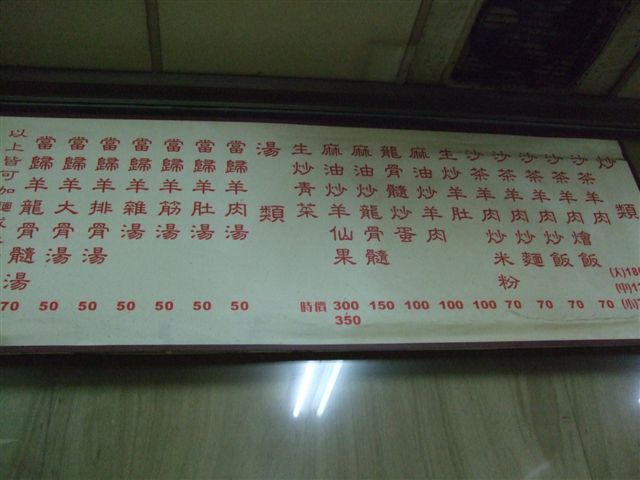 類
(大)
(中)
(小)
炒羊肉
沙茶羊肉燴飯 70
沙茶羊肉炒飯 70
沙茶羊肉炒麵 70
沙茶羊肉炒米粉 70
生炒羊肚 100
麻油炒羊肉 100
龍骨髓炒蛋 100
麻油炒龍骨髓 150
麻油炒羊仙果 300 350
生炒青菜 時價
湯類
當歸羊肉湯 50
當歸羊肚湯 50
當歸羊筋湯 50
當歸羊雜湯 50
當歸羊排骨湯 50
當歸羊大骨湯 50
當歸羊龍骨髓湯 70
以上皆可加麵